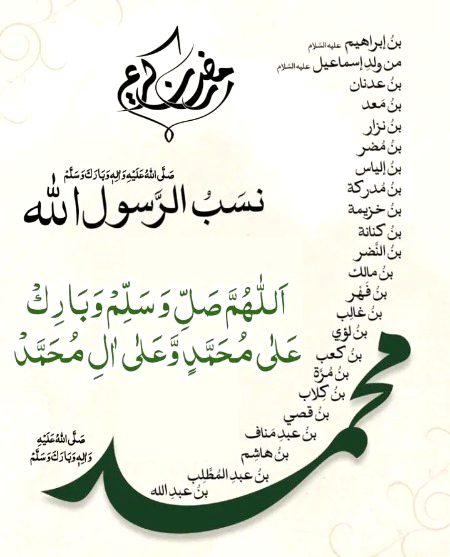 رمضان كريم
صَلَّى اللهُ عَلَيْهِ وَاٰلِهٖ وَبَارَكَ وَسَلَّمْ
نسَبُ الرَّسول الله
اَللّٰهُمَّ صَلِّ وَسَلِّمْ وَبَارِكْ
عَلٰى مُحَمَّدٍ وَّعَلٰى اٰلِ مُحَمَّدْ
بنُ إبراهيم عليه السّلام
من ولدِ إسماعيل عليه السّلام
بنُ عدنان
بنُ مَعد
بنُ نزار
بنُ مُضر
بنُ إلياس
بنُ مُدركة
بنُ خزيمة
بنُ كنانة
بنُ النَّضر
بنُ مالك
بنُ فَهْر
بنُ غالِب
بنُ لؤي
بنُ كعب
بنُ مُرَّة
بنُ كِلاب
بنُ قصي
بنُ عبدِ مَناف
بنُ هاشم
بنُ عبدِ المُطَّلِب
بنُ عبدِ الله
محمد
صَلَّى اللهُ عَلَيْهِ
وَاٰلِهٖ وَبَارَكَ وَسَلَّمْ